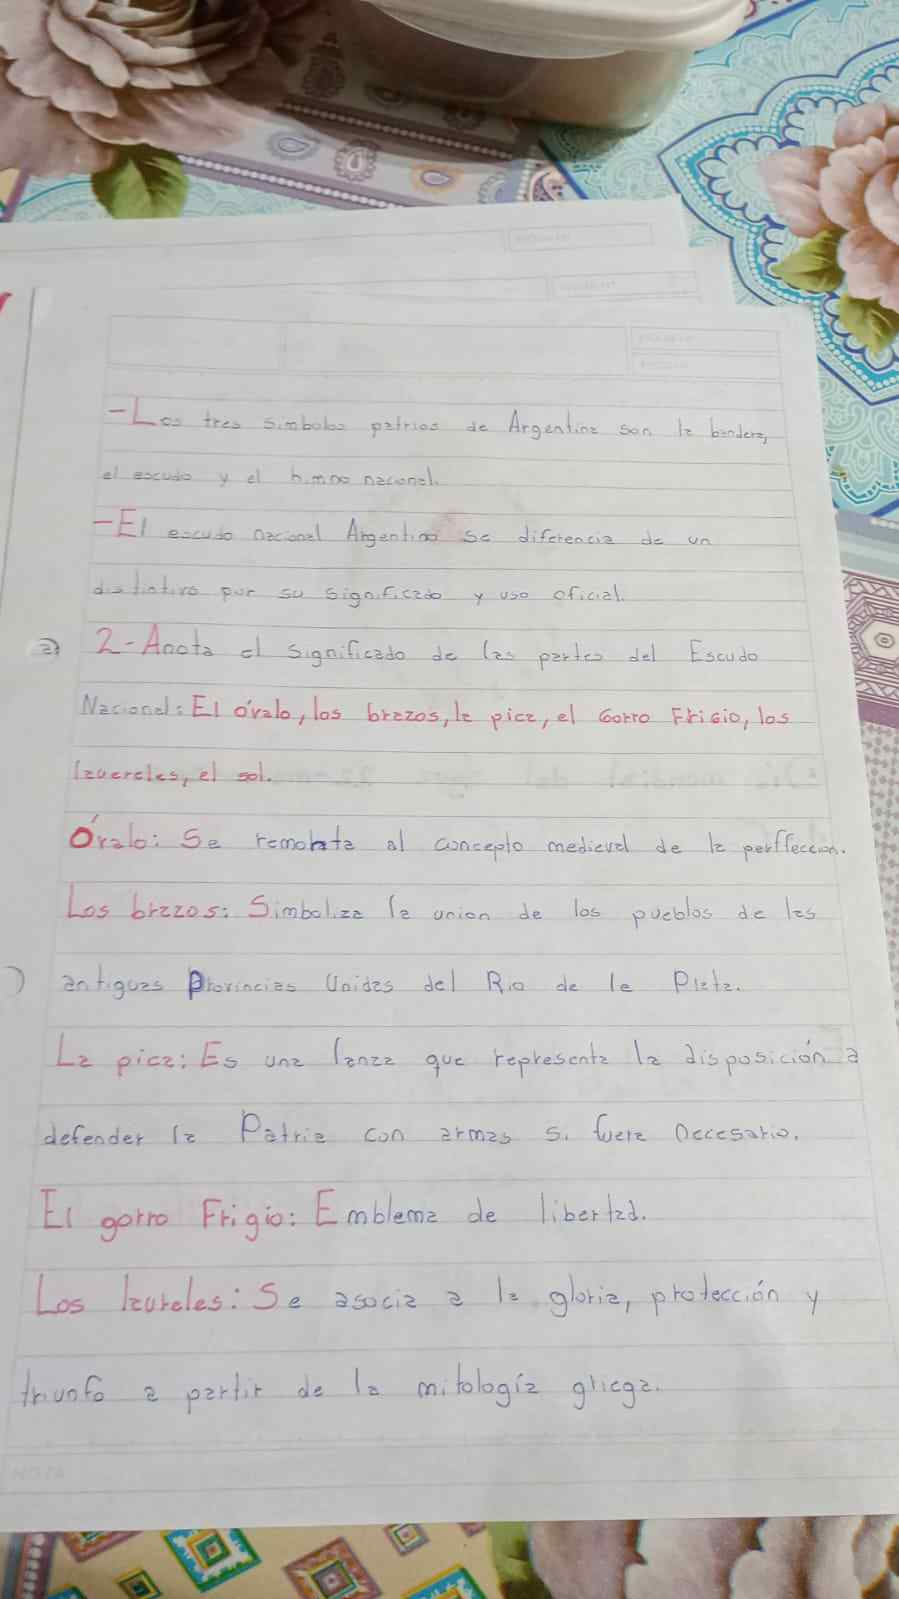 - Los tres simbolos patrios de Argentina son la bandera,
el escudo y el himno nacional.
- El escudo nacional Argentino se diferencia de un
distintivo por su significado y uso oficial.
2) 2- Anota el significado de las partes del Escudo
Nacional: El óvalo, los brazos, la pica, el Gorro Frigio, los
lauereles, el sol.
Óvalo: Se remonta al concepto medieval de la perffección.
Los brazos: Simboliza la union de los pueblos de las
antiguas Provincias Unidas del Rio de la Plata.
La pica: Es una lanza que representa la disposición a
defender la Patria con armas si fuera necesario.
El gorro Frigio: Emblema de libertad.
Los laureles: Se asocia a la gloria, protección y
triunfo a partir de la mitología griega.
NOTA